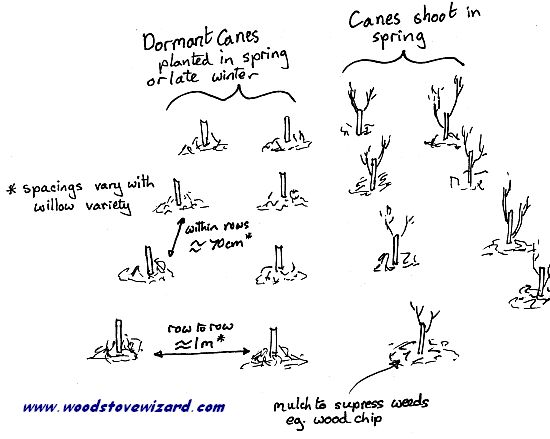 Dormant Canes
planted in spring
or late winter
Canes shoot in
spring
* spacings vary with
willow variety
within rows
≈ 70cm*
row to row
≈ 1m*
mulch to supress weeds
eg. wood chip
www.woodstovewizard.com